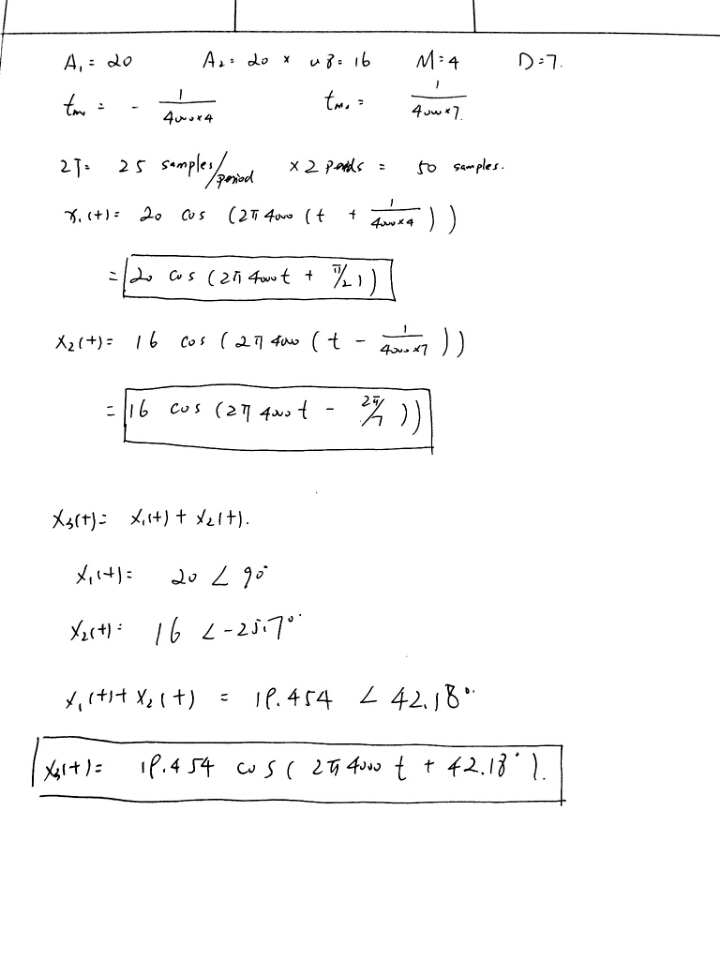 A₁ = 20 A₂ = 20 × 0.8 = 16 M = 4 D = 7.
tm₁ = - 1/(4000×4) tm₂ = 1/(4000×7)
2T = 25 samples/period × 2 periods = 50 samples.
x₁(t) = 20 cos (2π 4000 (t + 1/(4000×4)))
= 20 cos (2π 4000t + π/2))
x₂(t) = 16 cos (2π 4000 (t - 1/(4000×7)))
= 16 cos (2π 4000t - 2π/7))
x₃(t) = x₁(t) + x₂(t).
x₁(t) = 20 ∠ 90°
x₂(t) = 16 ∠ -25.7°
x₁(t) + x₂(t) = 19.454 ∠ 42.18°
x₃(t) = 19.454 cos ( 2π 4000 t + 42.18° ).